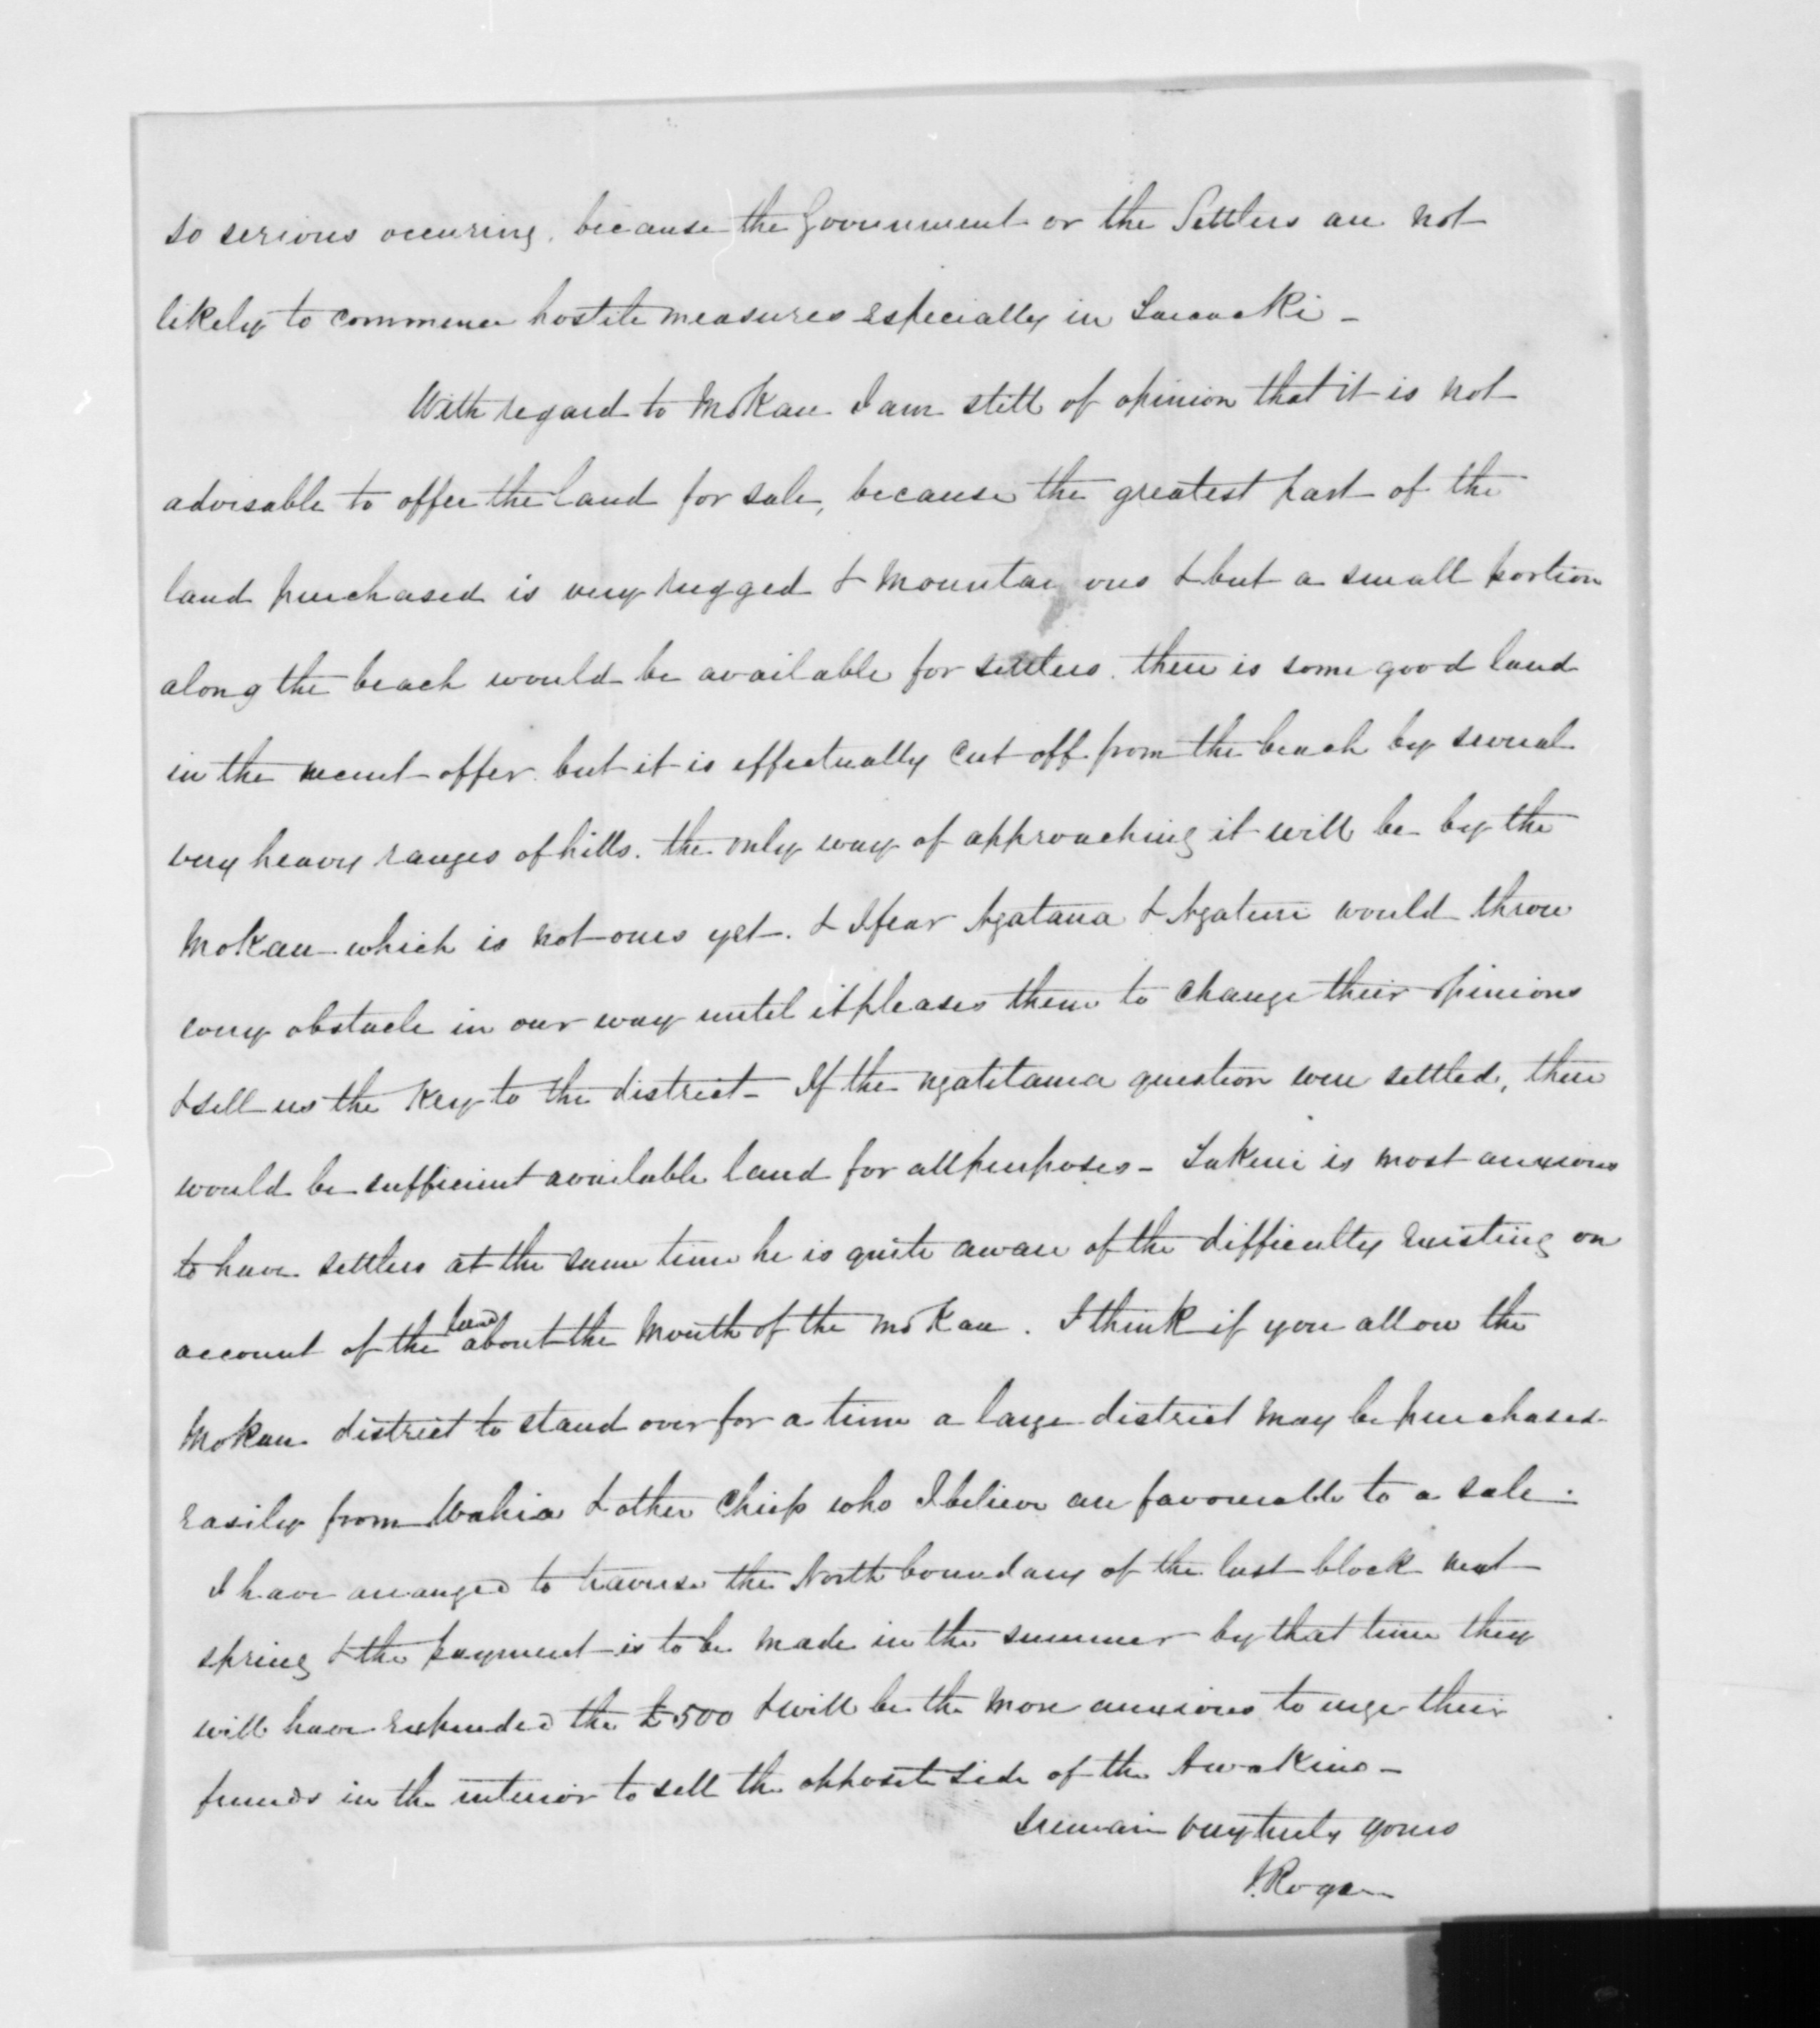 so serious occuring, because the Government or the Settlers are not
likely to commence hostile measures especially in Taranaki -
With regard to Mokau I am still of opinion that it is not
advisable to offer the land for sale, because the greatest part of the
land purchased is very rugged & mountainous & but a small portion
along the beach would be available for settlers. there is some good land
in the recent offer but it is effectually cut off from the beach by several
very heavy ranges of hills. the only way of approaching it will be by the
Mokau which is not ours yet. & I fear Ngatama & would throw
every obstacle in our way until it pleases them to change their opinions
& sell us the key to the district - If the ngatitama question were settled, there
would be sufficient available land for all purposes - Takerei is most anxious
to have settlers at the same time he is quite aware of the difficulty existing on
account of the land about the mouth of the Mokau. I think if you allow the
Mokau district to stand over for a time a large district may be purchased
easily from Wahia & other Chiefs who I believe are favourable to a sale.
I have arranged to traverse the North boundary of the last block next
spring & the payment is to be made in the summer by that time they
will have expended the £500 & will be the more anxious to urge their
friends in the interior to sell the opposite side of the Awakino -
I remain very truly yours
J. Rogan